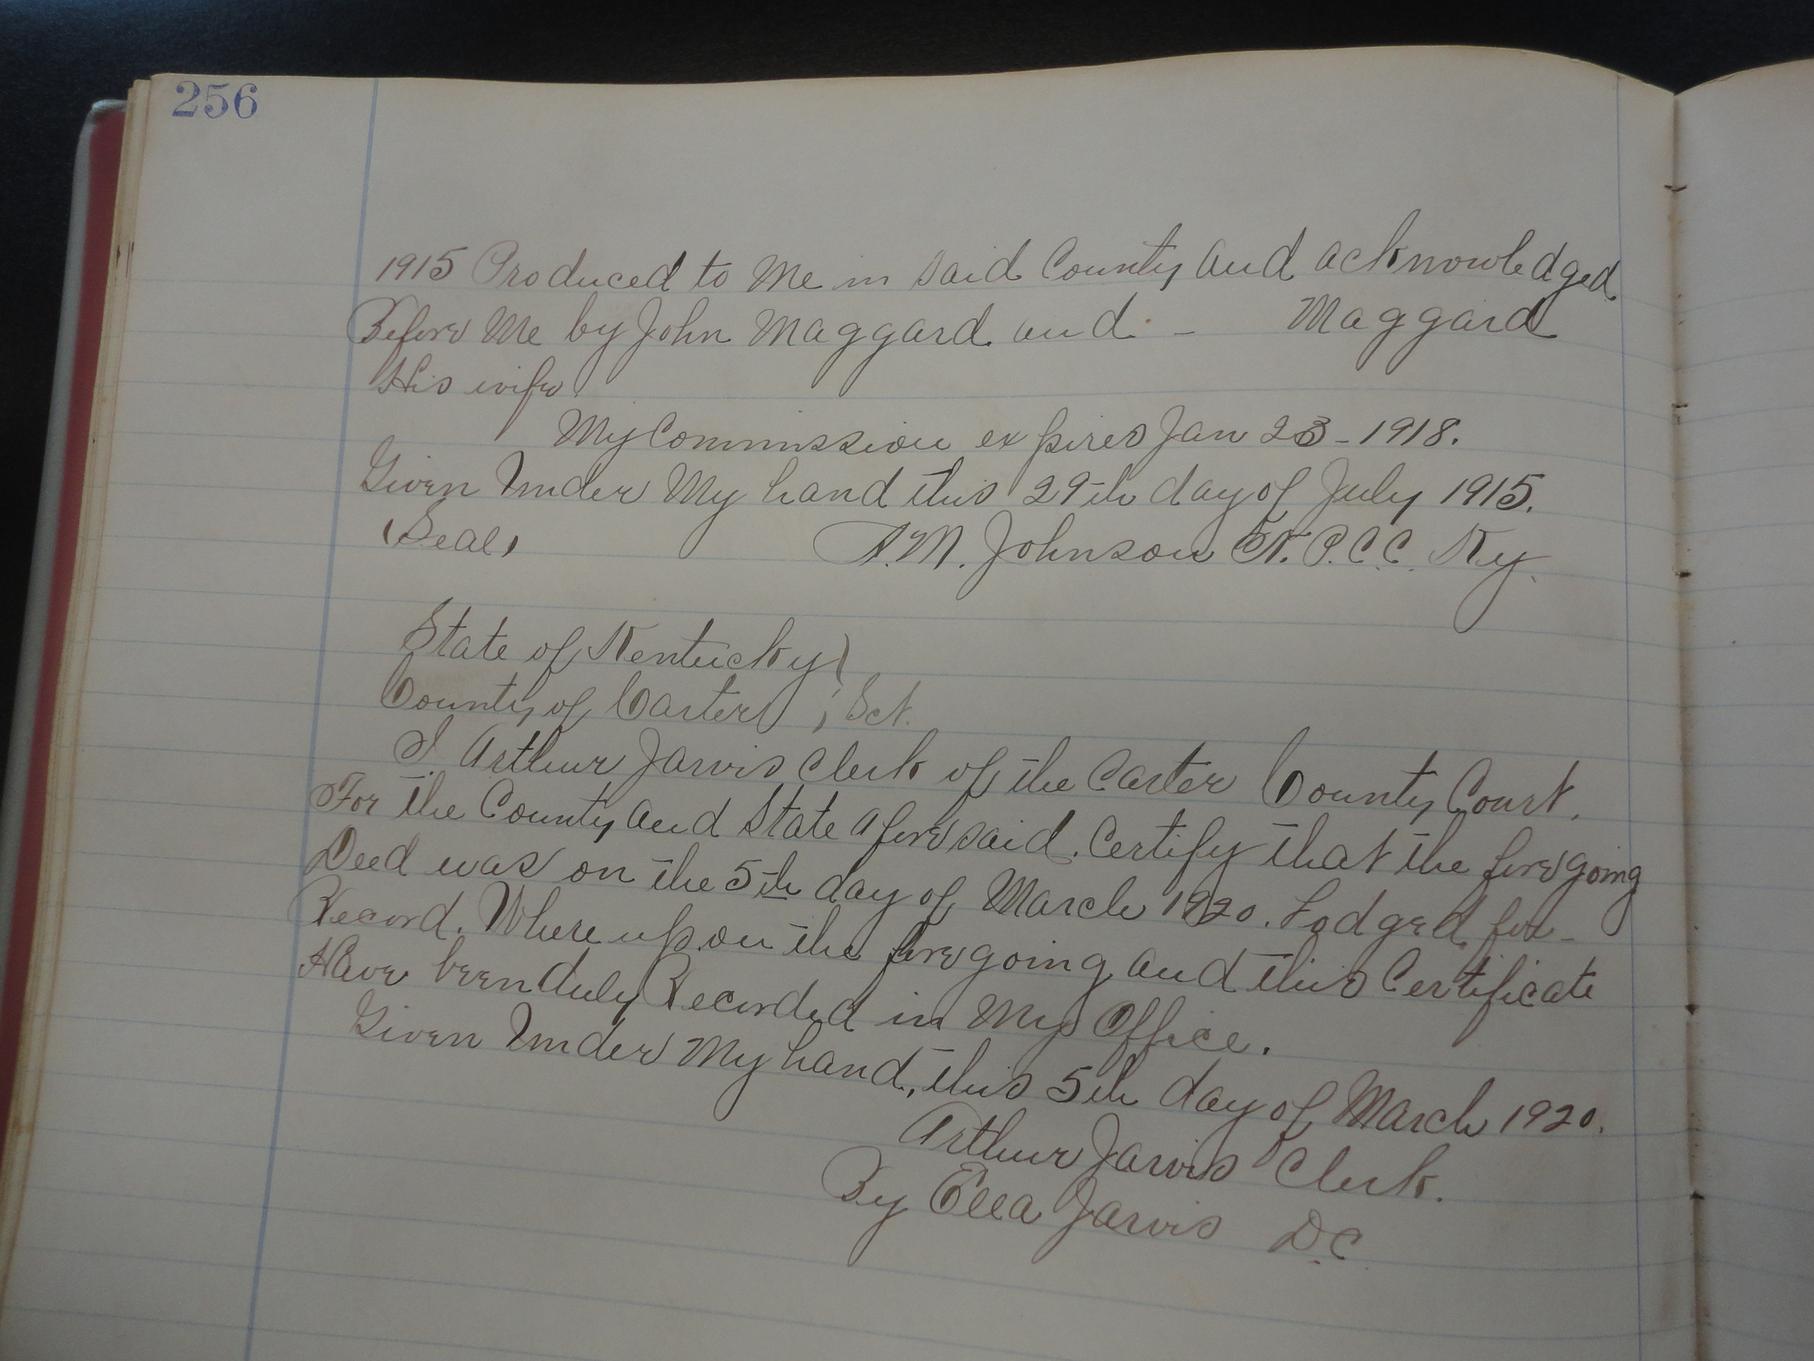 256
1915 Produced to Me in said County and acknowledged
Before Me by John Maggard and - Maggard
His wife
My Commission expires Jan 23-1918.
Given Under My hand this 29th day of July 1915.
(Seal) A.M. Johnson N.P.C.C. Ky.
State of Kentucky }
County of Carter ; Sct.
I Arthur Jarvis Clerk of the Carter County Court.
For the County and State aforesaid. Certify that the foregoing
Deed was on the 5th day of March 1920. Lodged for
Record. Where upon the foregoing and this Certificate
Have been duly Recorded in My Office.
Given Under My hand, this 5th day of March 1920.
Arthur Jarvis Clerk.
By Ella Jarvis D.C.